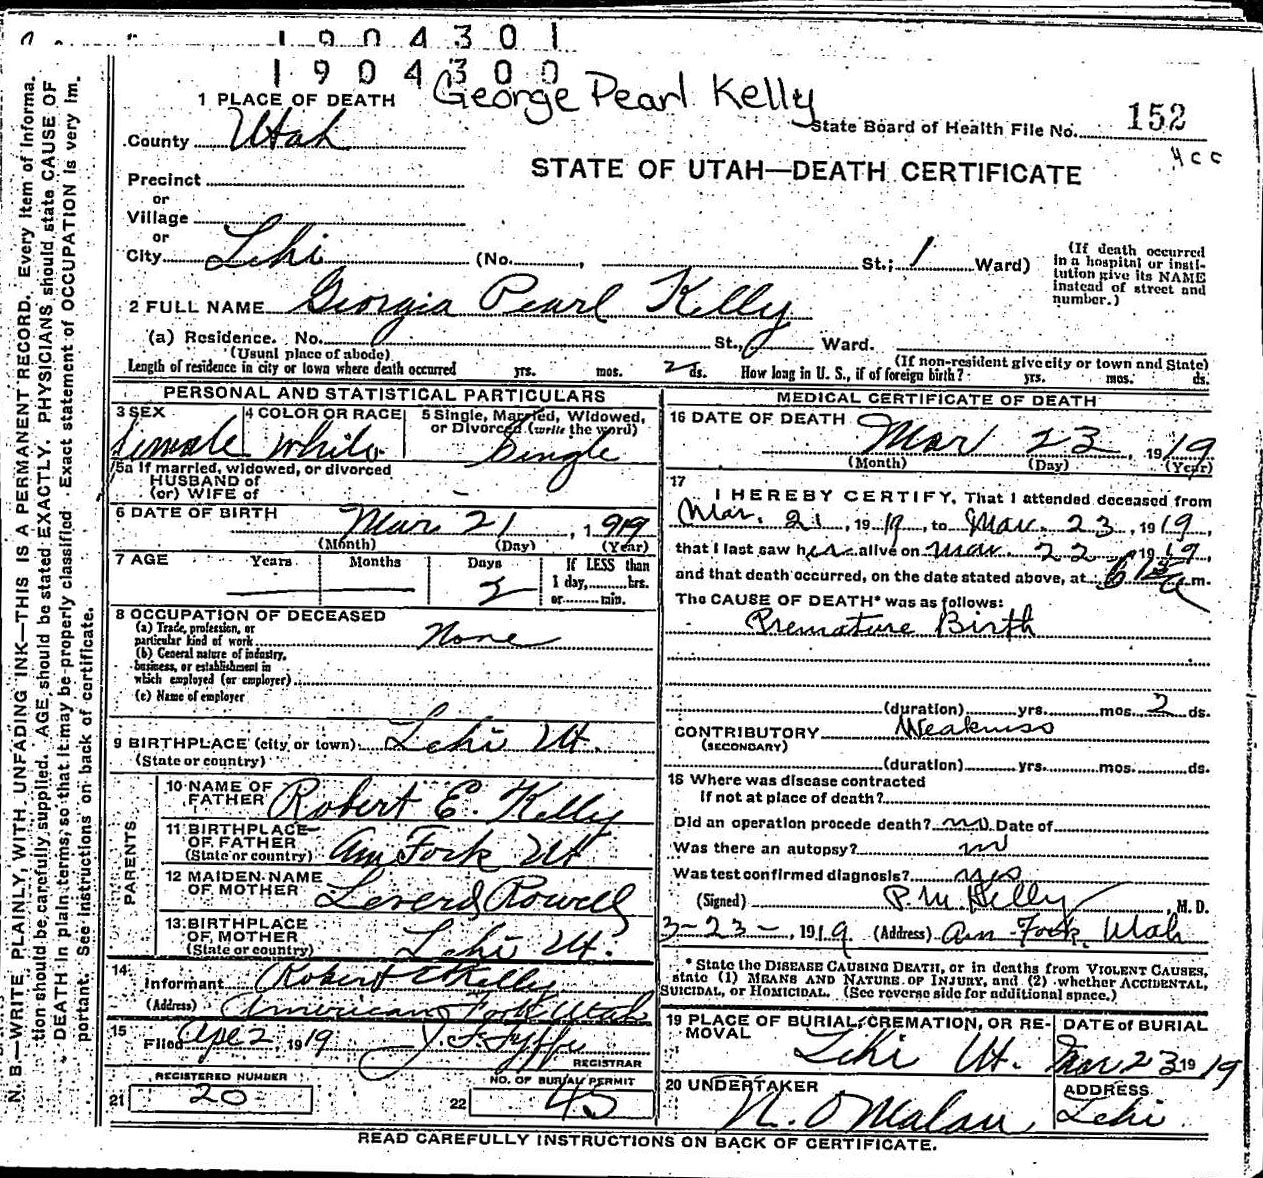 1904301
1904300
George Pearl Kelly
1 PLACE OF DEATH
State Board of Health File No. 152
County Utah
4cc
STATE OF UTAH—DEATH CERTIFICATE
Precinct
or
Village
or
City Lehi (No. , St.; 1 Ward)
(If death occurred in a hospital or institution give its NAME instead of street and number.)
2 FULL NAME Georgia Pearl Kelly
(a) Residence. No. St., Ward.
(Usual place of abode) (If non-resident give city or town and State)
Length of residence in city or town where death occurred yrs. mos. 2 ds. How long in U. S., if of foreign birth? yrs. mos. ds.
PERSONAL AND STATISTICAL PARTICULARS
3 SEX 4 COLOR OR RACE 5 Single, Married, Widowed, or Divorced (write the word)
Female White Single
5a If married, widowed, or divorced
HUSBAND of
(or) WIFE of
6 DATE OF BIRTH Mar 21, 1919
(Month) (Day) (Year)
7 AGE Years Months Days If LESS than
2 1 day, hrs.
or min.
8 OCCUPATION OF DECEASED
(a) Trade, profession, or
particular kind of work None
(b) General nature of industry,
business, or establishment in
which employed (or employer)
(c) Name of employer
9 BIRTHPLACE (city or town) Lehi Ut.
(State or country)
PARENTS
10 NAME OF FATHER Robert E. Kelly
11 BIRTHPLACE OF FATHER (State or country) Am Fork Ut
12 MAIDEN NAME OF MOTHER Rowell
13 BIRTHPLACE OF MOTHER (State or country) Lehi Ut.
14
Informant Robert E Kelly
(Address) American Fork Utah
15
Filed Apr 2, 1919 J. F. Fyffe
REGISTRAR
REGISTERED NUMBER NO. OF BURIAL PERMIT
21 20 22 45
MEDICAL CERTIFICATE OF DEATH
16 DATE OF DEATH Mar 23, 1919
(Month) (Day) (Year)
17
I HEREBY CERTIFY, That I attended deceased from
Mar. 21, 1919, to Mar. 23, 1919,
that I last saw her alive on Mar. 22, 1919,
and that death occurred, on the date stated above, at 6 15 a m.
The CAUSE OF DEATH* was as follows:
Premature Birth
(duration) yrs. mos. 2 ds.
CONTRIBUTORY Weakness
(SECONDARY)
(duration) yrs. mos. ds.
18 Where was disease contracted
if not at place of death?
Did an operation precede death? no Date of
Was there an autopsy? no
Was test confirmed diagnosis?
(Signed) P. M. Kelly, M. D.
3-23-, 1919 (Address) Am Fork, Utah
* State the DISEASE CAUSING DEATH, or in deaths from VIOLENT CAUSES,
state (1) MEANS AND NATURE OF INJURY, and (2) whether ACCIDENTAL,
SUICIDAL, or HOMICIDAL. (See reverse side for additional space.)
19 PLACE OF BURIAL, CREMATION, OR RE-
MOVAL
DATE of BURIAL
Lehi Ut. Mar 23 1919
20 UNDERTAKER ADDRESS
N. O Malan Lehi
READ CAREFULLY INSTRUCTIONS ON BACK OF CERTIFICATE.
N. B.—WRITE PLAINLY, WITH UNFADING INK—THIS IS A PERMANENT RECORD. Every item of informa-
tion should be carefully supplied. AGE should be stated EXACTLY. PHYSICIANS should state CAUSE OF
DEATH in plain terms, so that it may be properly classified. Exact statement of OCCUPATION is very im-
portant. See instructions on back of certificate.